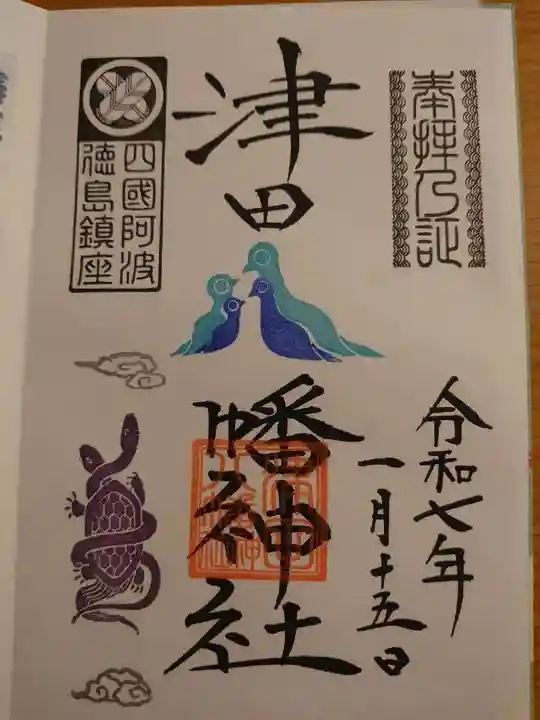 奉拝乃証
令和七年
一月十五日
津田
幡神社
四國阿波
徳島鎮座